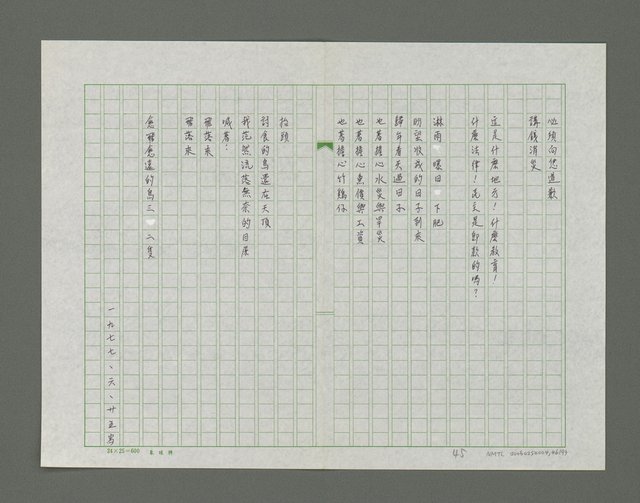 必須向您道歉
請錢消災
這是什麼地方！什麼教育！
什麼法律！花文是即款的嗎？
淋雨 曝日 下肥
盼望收成的日子到來
歸年看天過日子
也著擔心水災與旱災
也著擔心魚價與工資
也著擔心竹鷄仔
抬頭
討食的鳥還在天頂
我茫然流落無奈的目屎
喊著：
飛落來
飛落來
愈飛愈遠的鳥三 二隻
一九七七、六、廿五寫
24×25=600
45
NMTL